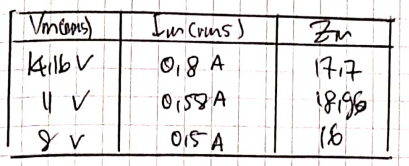 Vm(rms) Im(rms) Zm
14,16 V 0,8 A 17,7
11 V 0,58 A 18,96
8 V 0,5 A 16